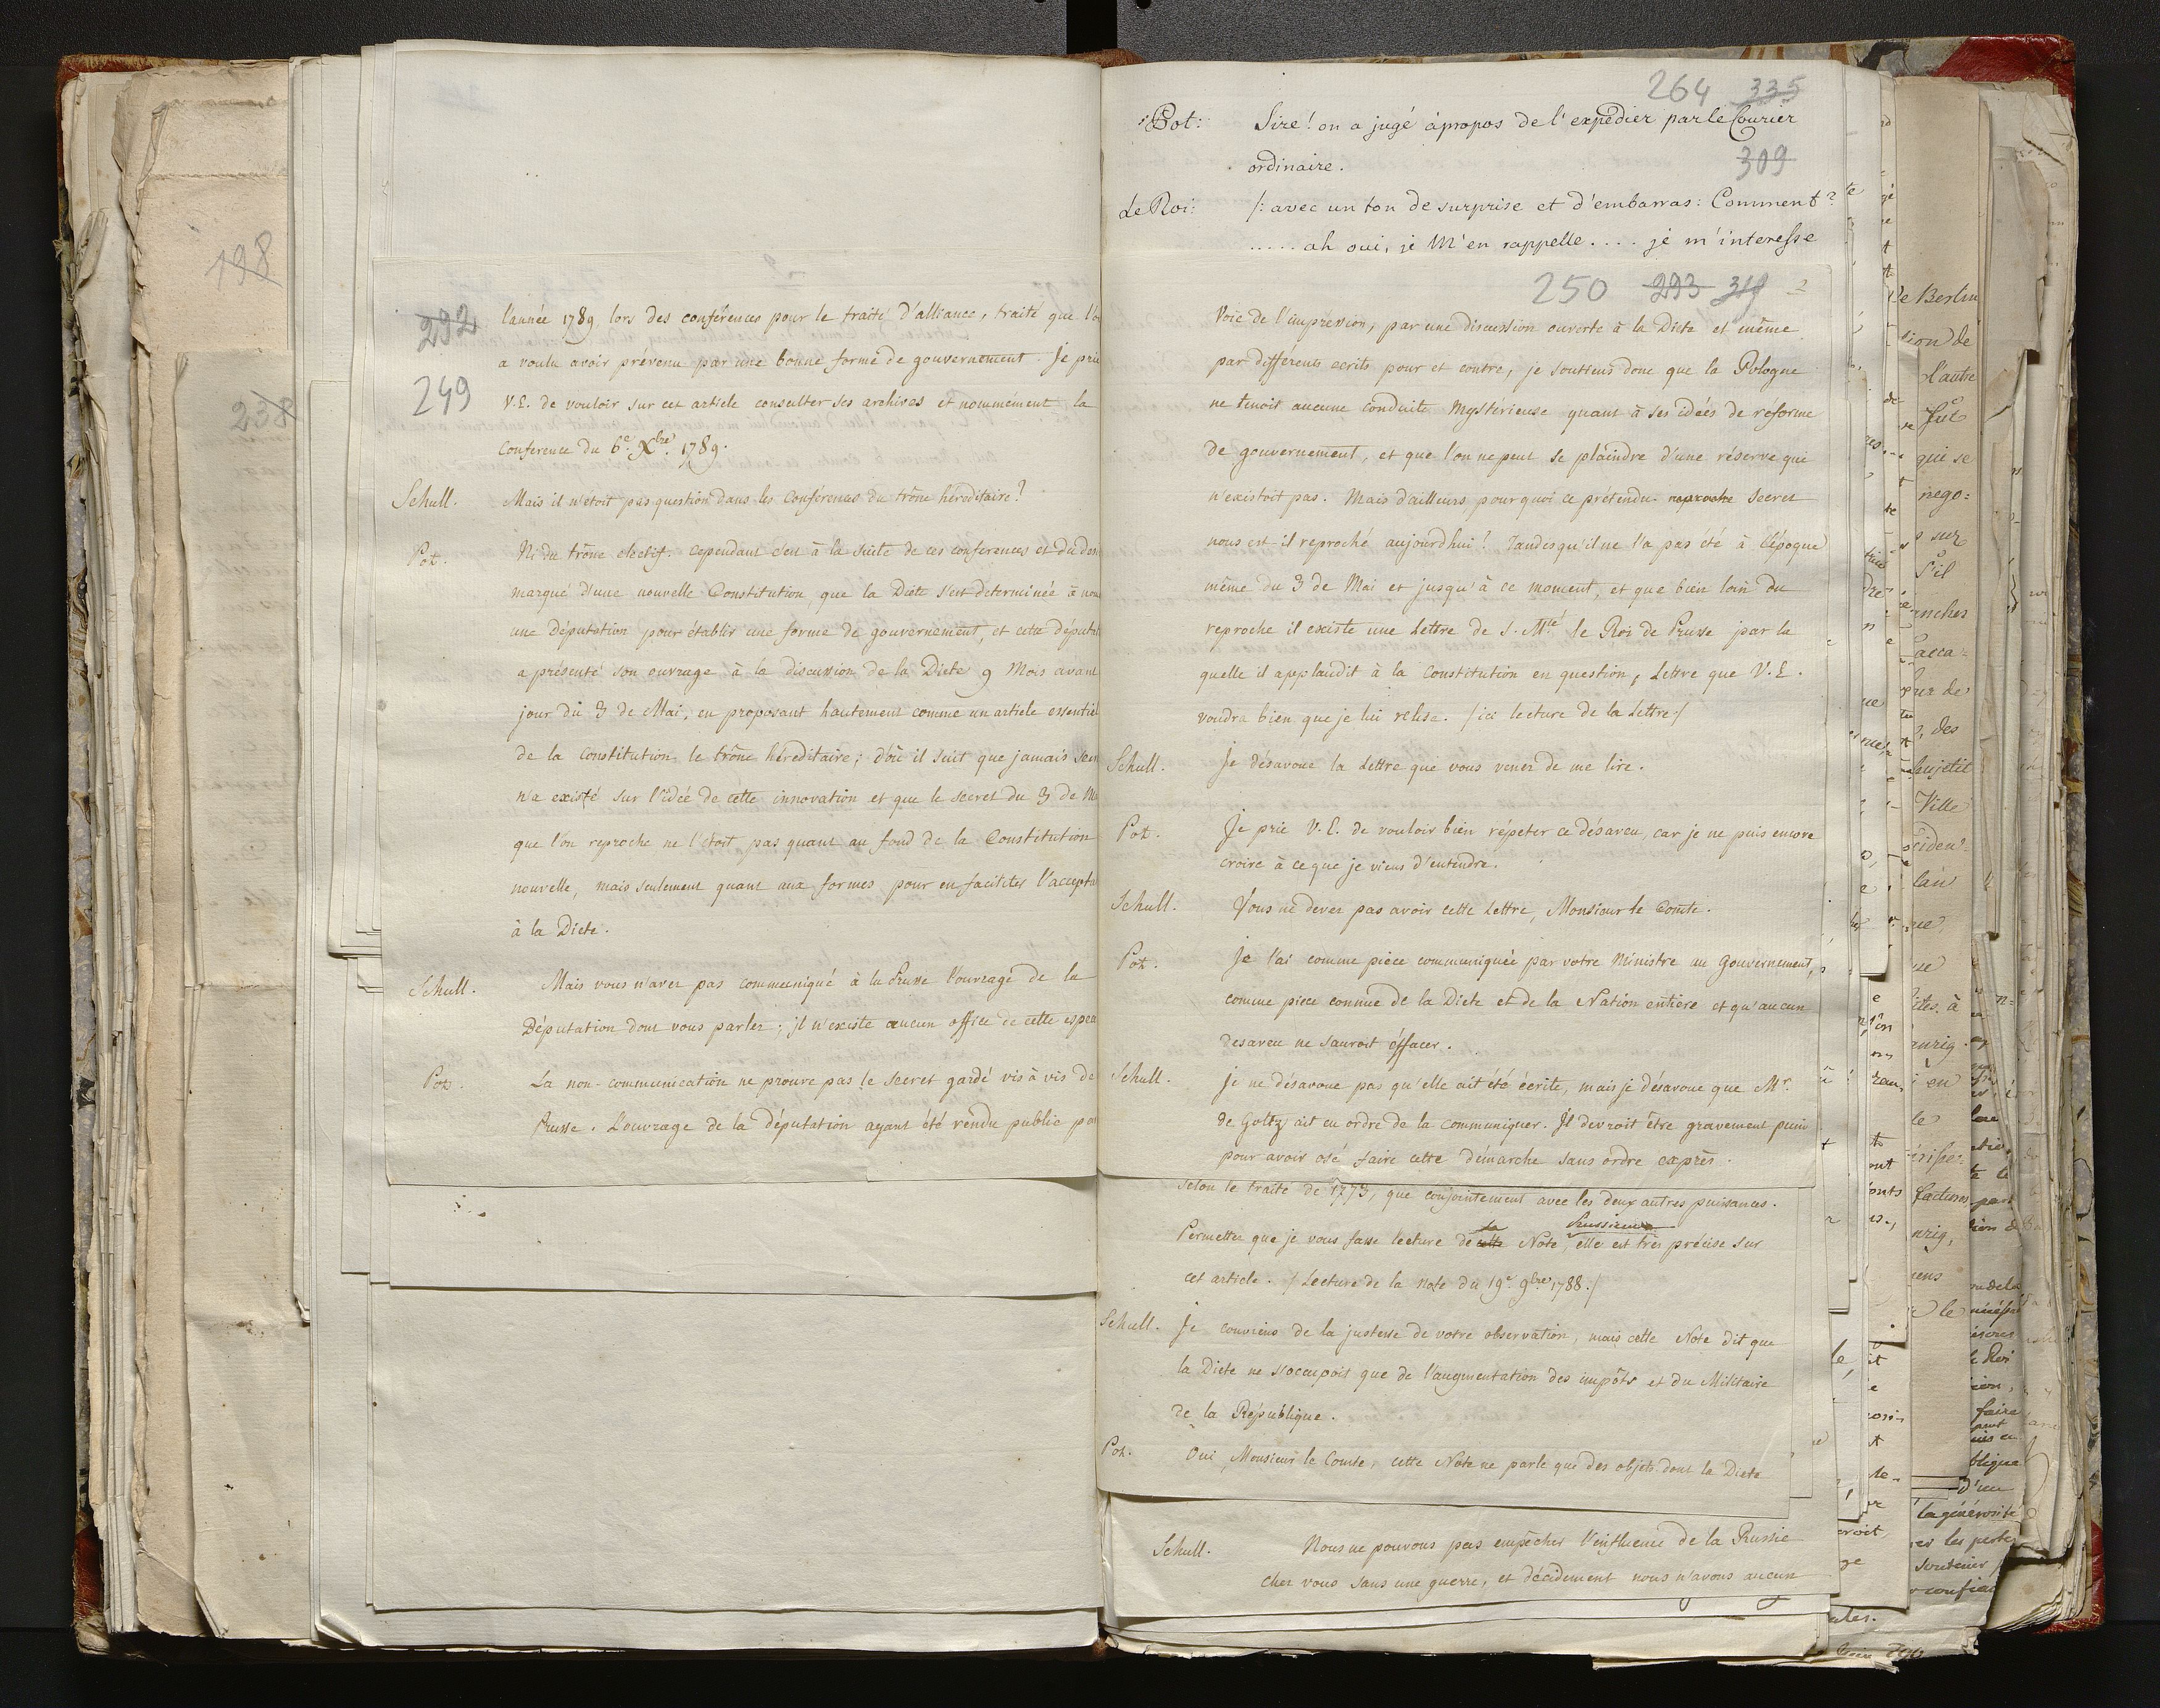 198
238
292
249
l'année 1789 lors des conférences pour le traité d'alliance, traité que
a voulu avoir prévenu par une bonne forme de gouvernement. Je prie
V.E. de vouloir sur cet article consulter ses archives et nommément la
Conference du 6e Xbre 1789.
Schull. Mais il n'étoit pas question dans les conférences du trône héréditaire?
Pot. Ni du trône electif. cependant c'est à la suite de ces conferences et du
marqué d'une nouvelle Constitution, que la Diete s'est determinée à
une Députation pour établir une forme de gouvernement, et cette
a présenté son ouvrage à la discussion de la Diete 9 Mois avant
jour du 3 de Mai, en proposant hautement comme un article essentiel
de la constitution le trône héreditaire; d'où il suit que jamais
n'a existé sur l'idée de cette innovation et que le secret du 3 de
que l'on reproche ne l'étoit pas quant au fond de la Constitution
nouvelle, mais seulement quant aux formes pour en faciliter
à la Diete.
Schull. Mais vous n'avez pas communiqué à la Prusse l'ouvrage de la
Députation dont vous parlez; il n'existe aucun office de cette
Pot. La non-communication ne prouve pas le secret gardé vis à vis de
Prusse. L'ouvrage de la députation ayant été rendu public
264 335
Pot: Sire! on a jugé àpropos de l'expédier par le Courier
ordinaire.
309
Le Roi: /: avec un ton de surprise et d'embarras: Comment?
..... ah oui, je M'en rappelle.... je m'interesse
250 293 319 2
Voie de l'impression, par une discussion ouverte à la Diete et même
par differents ecrits pour et contre, je soutiens donc que la Pologne
ne tenoit aucune conduite Mystérieuse quant à ses idées de réforme
de gouvernement, et que l'on ne peut se plaindre d'une réserve qui
n'existoit pas. Mais d'ailleurs pourquoi ce prétendu reproche secret
nous est-il reproché aujourdhui? Tandis qu'il ne l'a pas été à l'époque
même du 3 de Mai et jusqu'à ce moment, et que bien loin du
reproche il existe une Lettre de S. Mté le Roi de Prusse par la
quelle il applaudit à la constitution en question, Lettre que V.E.
voudra bien que je lui relise. /ici lecture de la Lettre/
Schull. Je désavoue la Lettre que vous venez de me lire.
Pot. Je prie V.E. de vouloir bien répeter ce désaveu, car je ne puis encore
croire à ce que je viens d'entendre.
Schull. Vous ne devez pas avoir cette Lettre, Monsieur le Comte.
Pot. Je l'ai comme pièce communiquée par votre Ministre au Gouvernement,
comme piece connue de la Diete et de la Nation entiere et qu'aucun
desaveu ne sauroit éffacer.
Schull. Je ne désavoue pas qu'elle ait été écrite, mais je désavoue que Mr.
de Goltz ait eu ordre de la communiquer. Il devroit être gravement puni
pour avoir osé faire cette démarche sans ordre exprès.
selon le traité de 1773, que conjointement avec les deux autres puissances.
Permettez que je vous fasse lecture de cette la Note Prussienne, elle est très précise sur
cet article. /Lecture de la note du 19e 9bre 1788./
Schull. Je conviens de la justesse de votre observation, mais cette Note dit que
la Diete ne s'occupoit que de l'augmentation des impôts et du Militaire
de la République.
Pot. Oui, Monsieur le Comte, cette Note ne parle que des objets dont la Diete
Schull. Nous ne pouvons pas empêcher l'influence de la Russie
chez vous sans une guerre, et décidement nous n'avons aucun